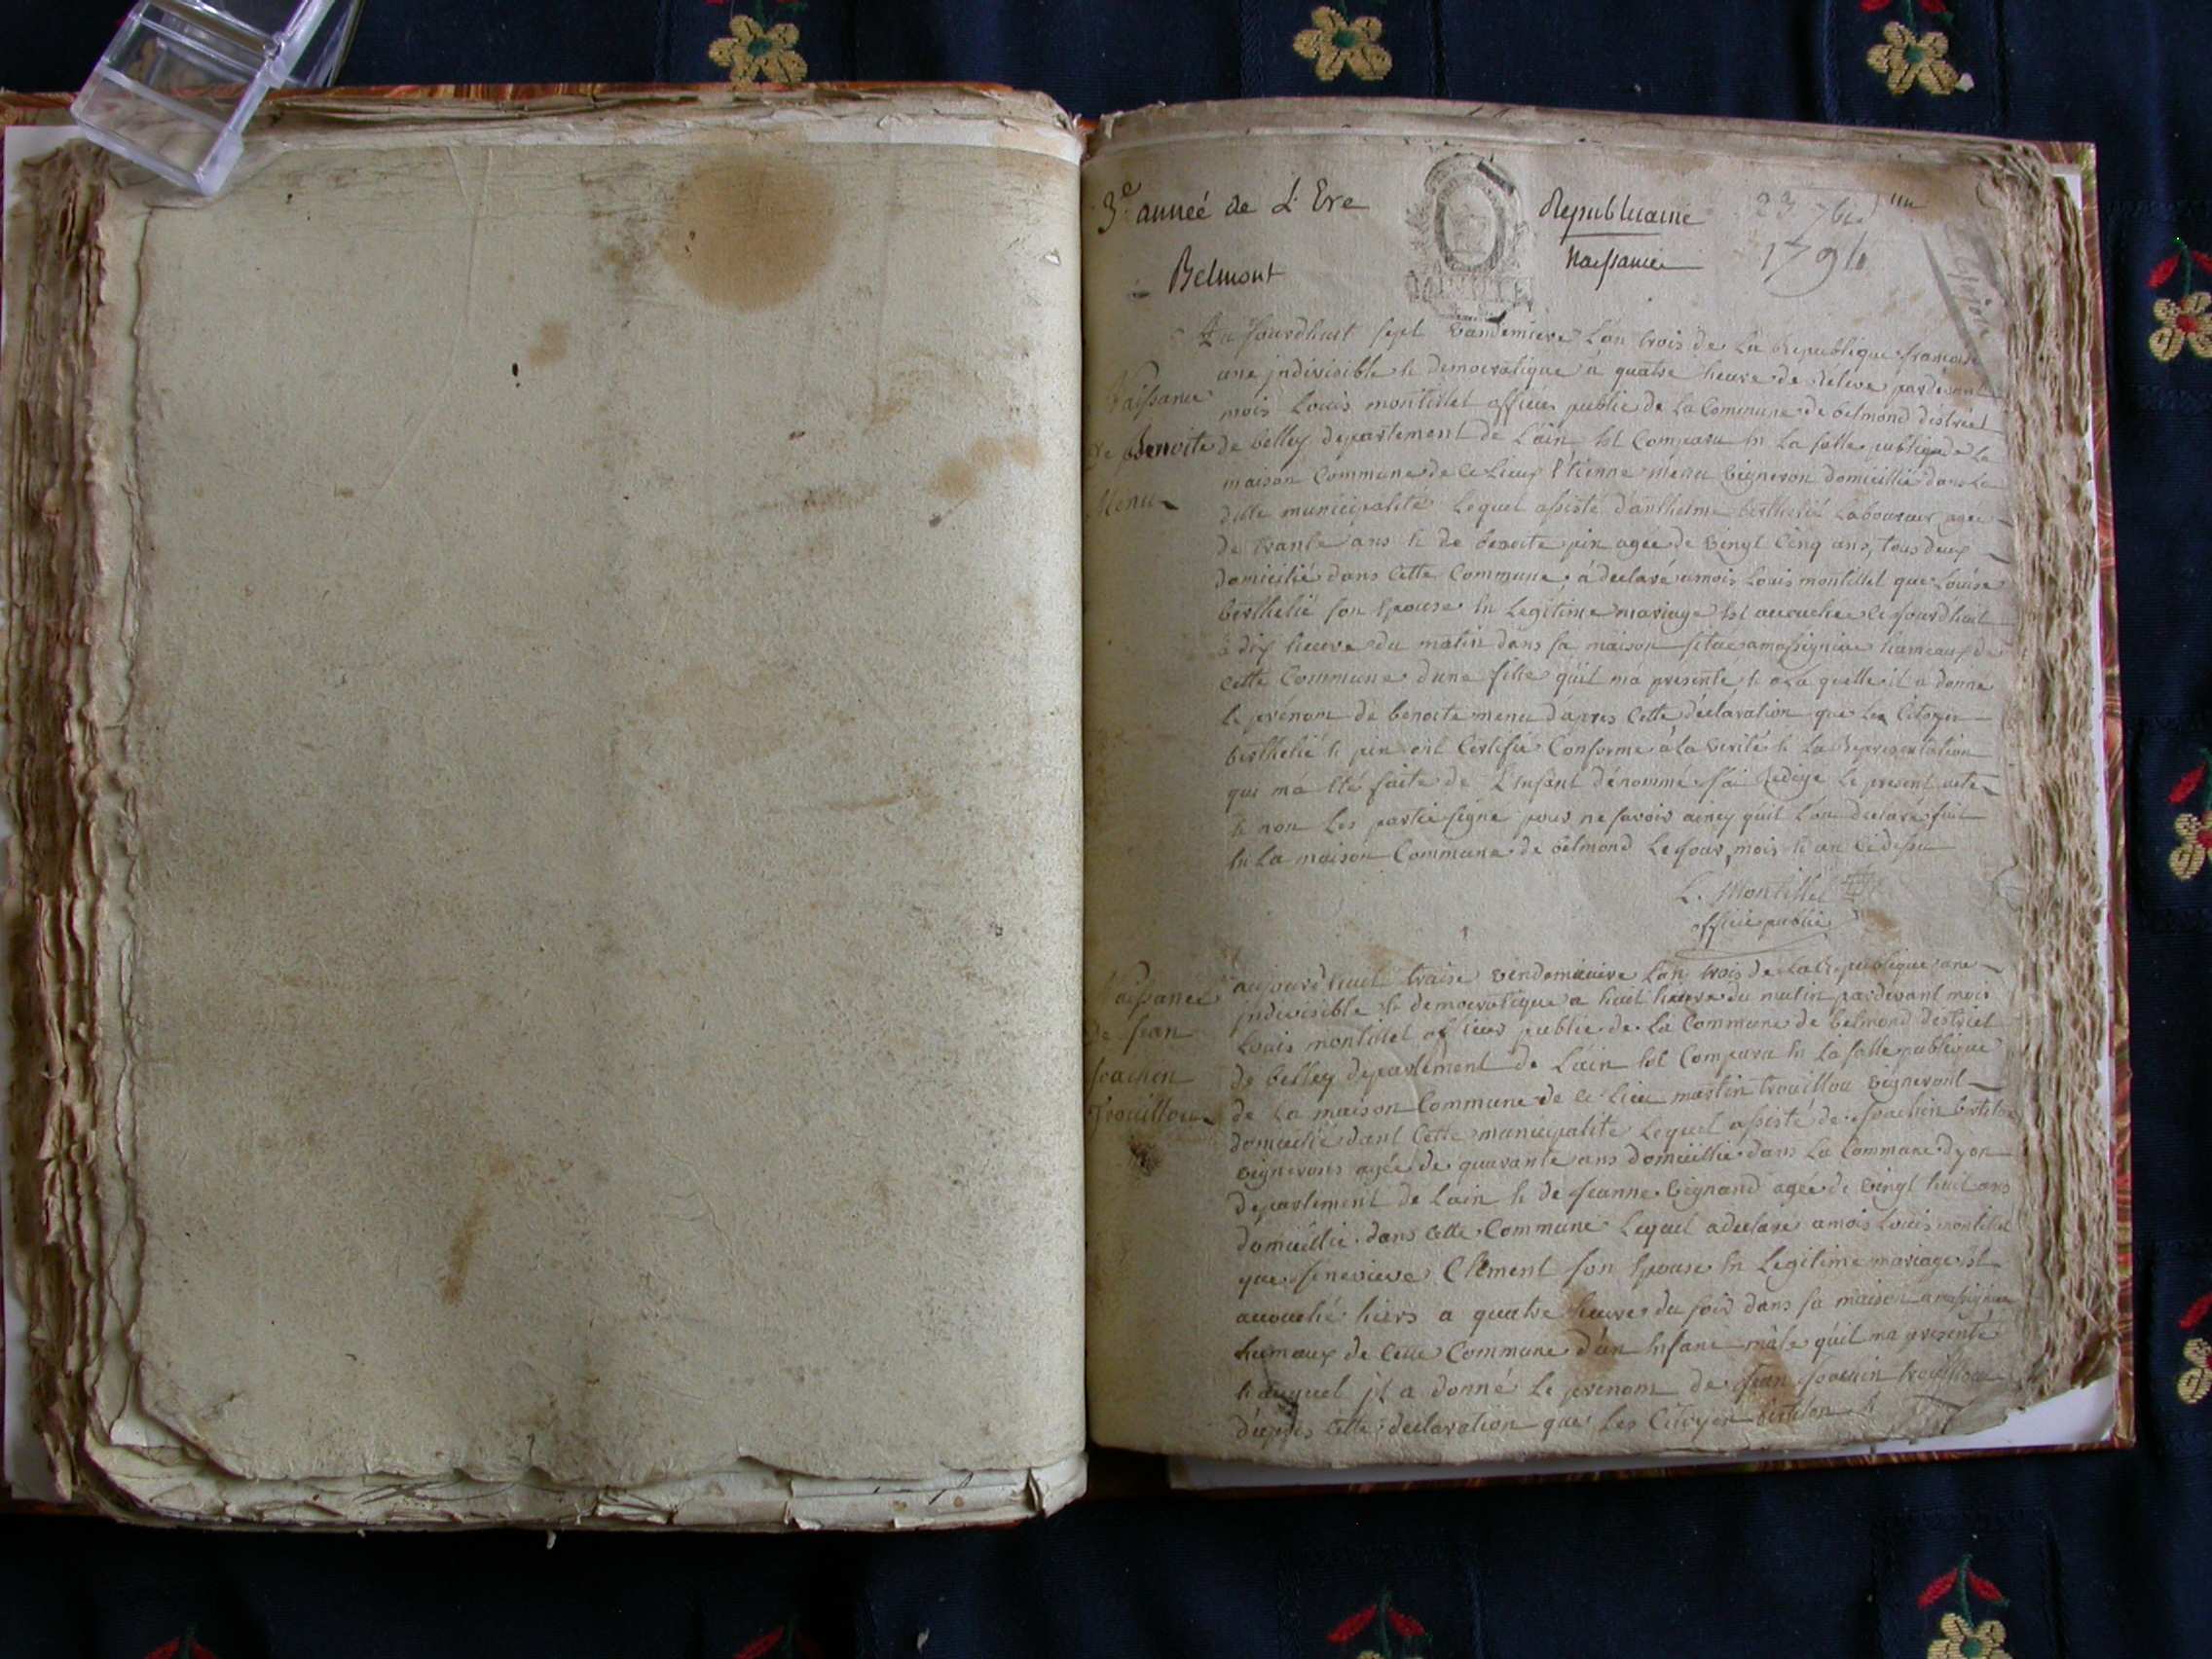 3e année de L'Ere Republicaine 23 7bre
Belmont Naissance 1794
Au Jourdhuit sept vandemiere L'an trois de La Republique francaise
une jndivisible & democratique a quatre heure de releve pardevant
mois Louis montillet officier public de La Commune de belmond district
de belley departement de L'ain Est Comparu En La salle publique de La
maison Commune de Ce Lieux Etienne menu vigneron domicillié dans La
ditte municipalité Lequel assisté danthelme berthelié Laboureur agée
de trante ans & de benoite pin agée de vingt Cinq ans, tous deux
domicilié dans Cette Commune, á declaré amois Louis montillet que Louise
berthelié son Epouse En Legitime mariage Est accouchée ce Jourdhuit
à dix heure du matin dans sa maison situé amassignieu hameaux de
Cette Commune dune fille quil má presenté, & a La quelle il a donné
le prénom de benoite menu dapres Cette déclaration que Les Citoyen
berthelié & pin ont Certifié Conforme á la verité & La Representation
qui má Eté faite de L'Enfant dénommé Jái Redigé Le present acte
& non Les partie signe pour ne savoir ainsy quil L'on declaré fait
En La maison Commune de belmond Le Jour, mois & an ci dessu
L. Montillet
officié public
Naissance
de Benoite
Menu
aujourdhuit traise vendemiaire L'an trois de La Republique une
jndivisible & democratique a huit heure du matin pardevant mois
Louis montillet officier public de La Commune de belmond district
de belley departement de L'ain Est Comparu En La salle publique
de La maison Commune de Ce Lieu martin trouillou vigneront
domicilié dant Cette municipalité Lequel assisté de Joachin
vignerons agée de quarante ans domicillié dans La Commune dyon
departement de Lain & de Jeanne vignand agée de vingt huit ans
domicillié dans cette Commune Lequel adeclaré amois Louis montillet
que Jenevieve Clement son Epouse En Legitime mariage Est
accouché hiers a quatre heure du soir dans sa maison amassignieu
hameaux de Cette Commune dún Enfant mâle quil ma presenté
& auquel jl a donné Le prenom de Jean Joachin trouillou
dáprès Cette declaration que Les Citoyen &
Naissance
de Jean
Joachin
Trouillou